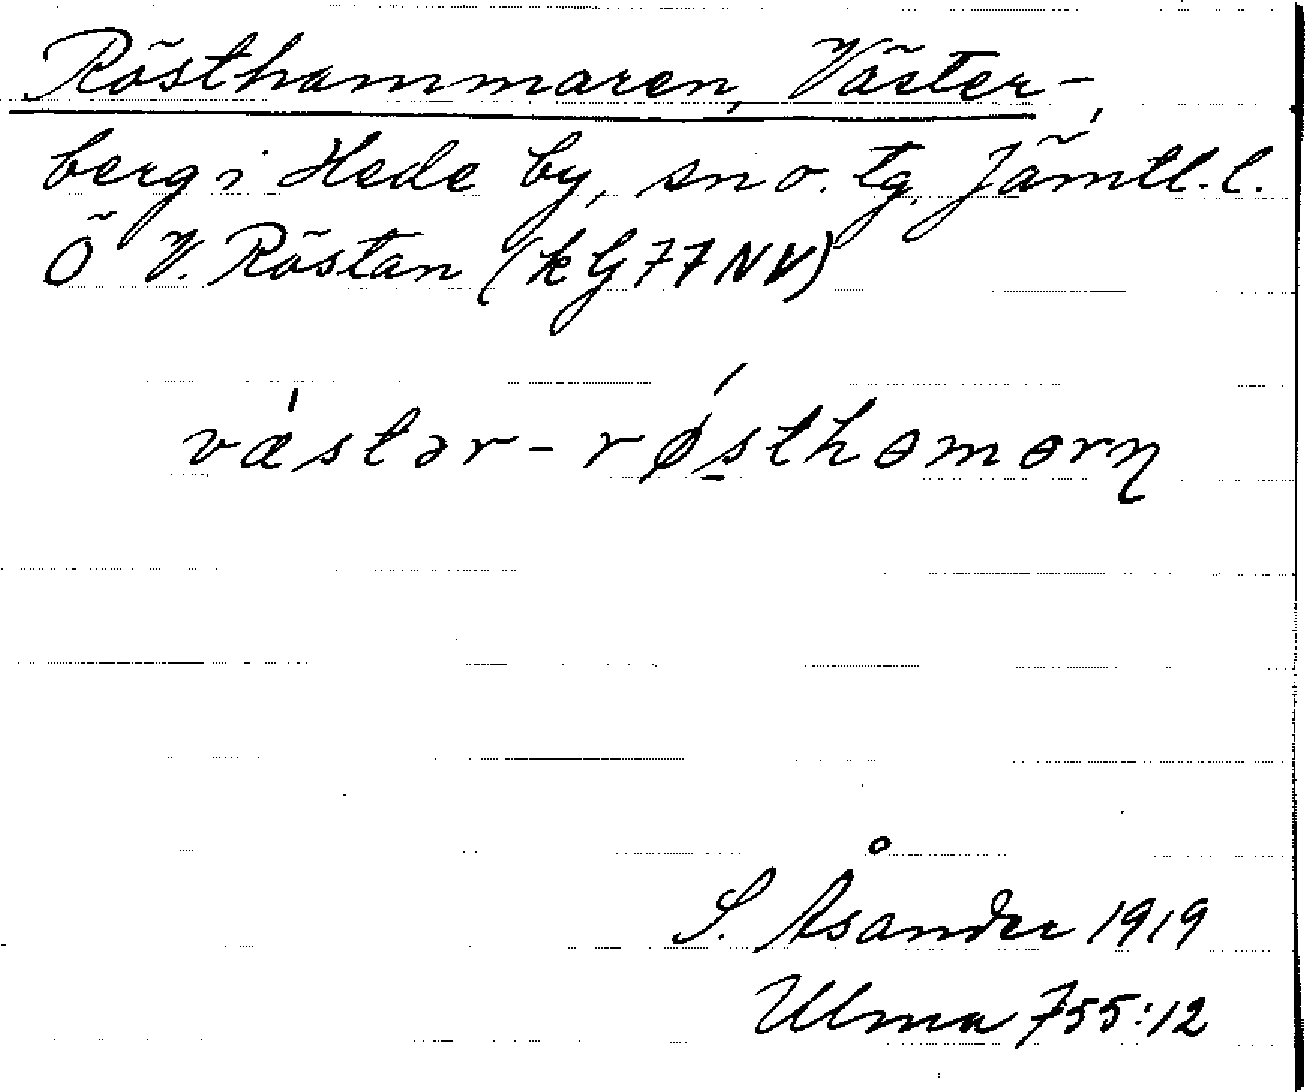 Rösthammaren, Väster-,
berg i Hede by, sn o. tg, Jämtl. l.
Ö V. Röstan (kG77NV)
væ̍stər-rø̍sthɵmɵrn̥
S. Åsander 1919
Ulma 755:12